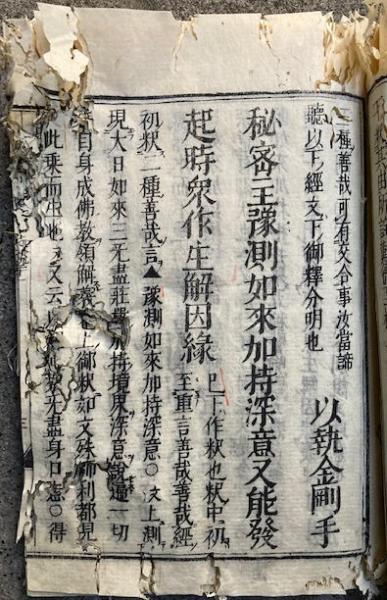 二種善哉可有交合事汝當諦
聽以下經文下御釋分明也 以執金剛手
秘密主豫測如來加持深意又能發
起時眾作生解因緣 已下作釋也釋中初至重言善哉善哉經
初釋二種善哉言▲豫測如來加持深意○文上測
現大日如來三无盡莊嚴加持境界深意說遍一切
自身成佛教領解 上御釋如文殊師利都見
此乘而生 又云 无盡身口意○得